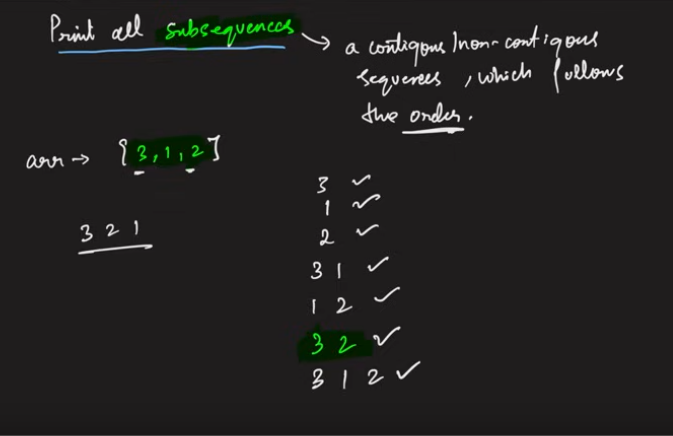 Print all subsequences → a contigous/non-contigous
sequences, which follows
the order.
arr → [3,1,2]
3 ✓
1 ✓
3 2 1
2 ✓
3 1 ✓
1 2 ✓
3 2 ✓
3 1 2 ✓